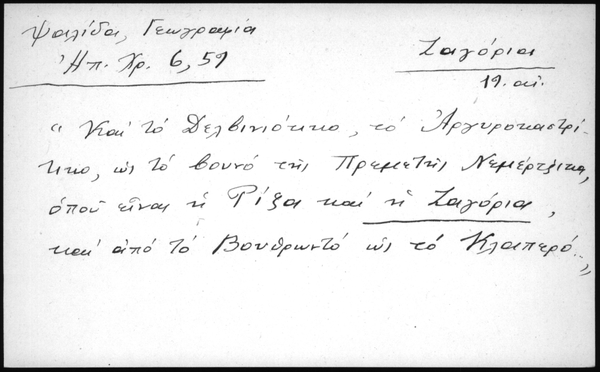 Ψαλίδα, Γεωγραφία
Ἠπ. Χρ. 6, 59
Ζαγόρια
19. αἰ.
"Καὶ τὸ Δελβινιότικο, τὸ Ἀργυροκαστρί-
τικο, ὡς τὸ βουνὸ τῆς Πρεμετῆς Νεμέρτζικα,
ὁποῦ εἶναι ἡ Ρίζα καὶ ἡ Ζαγόρια,
καὶ ἀπὸ τὸ Βουθρωντὸ ὡς τὸ Κλαπερό..."